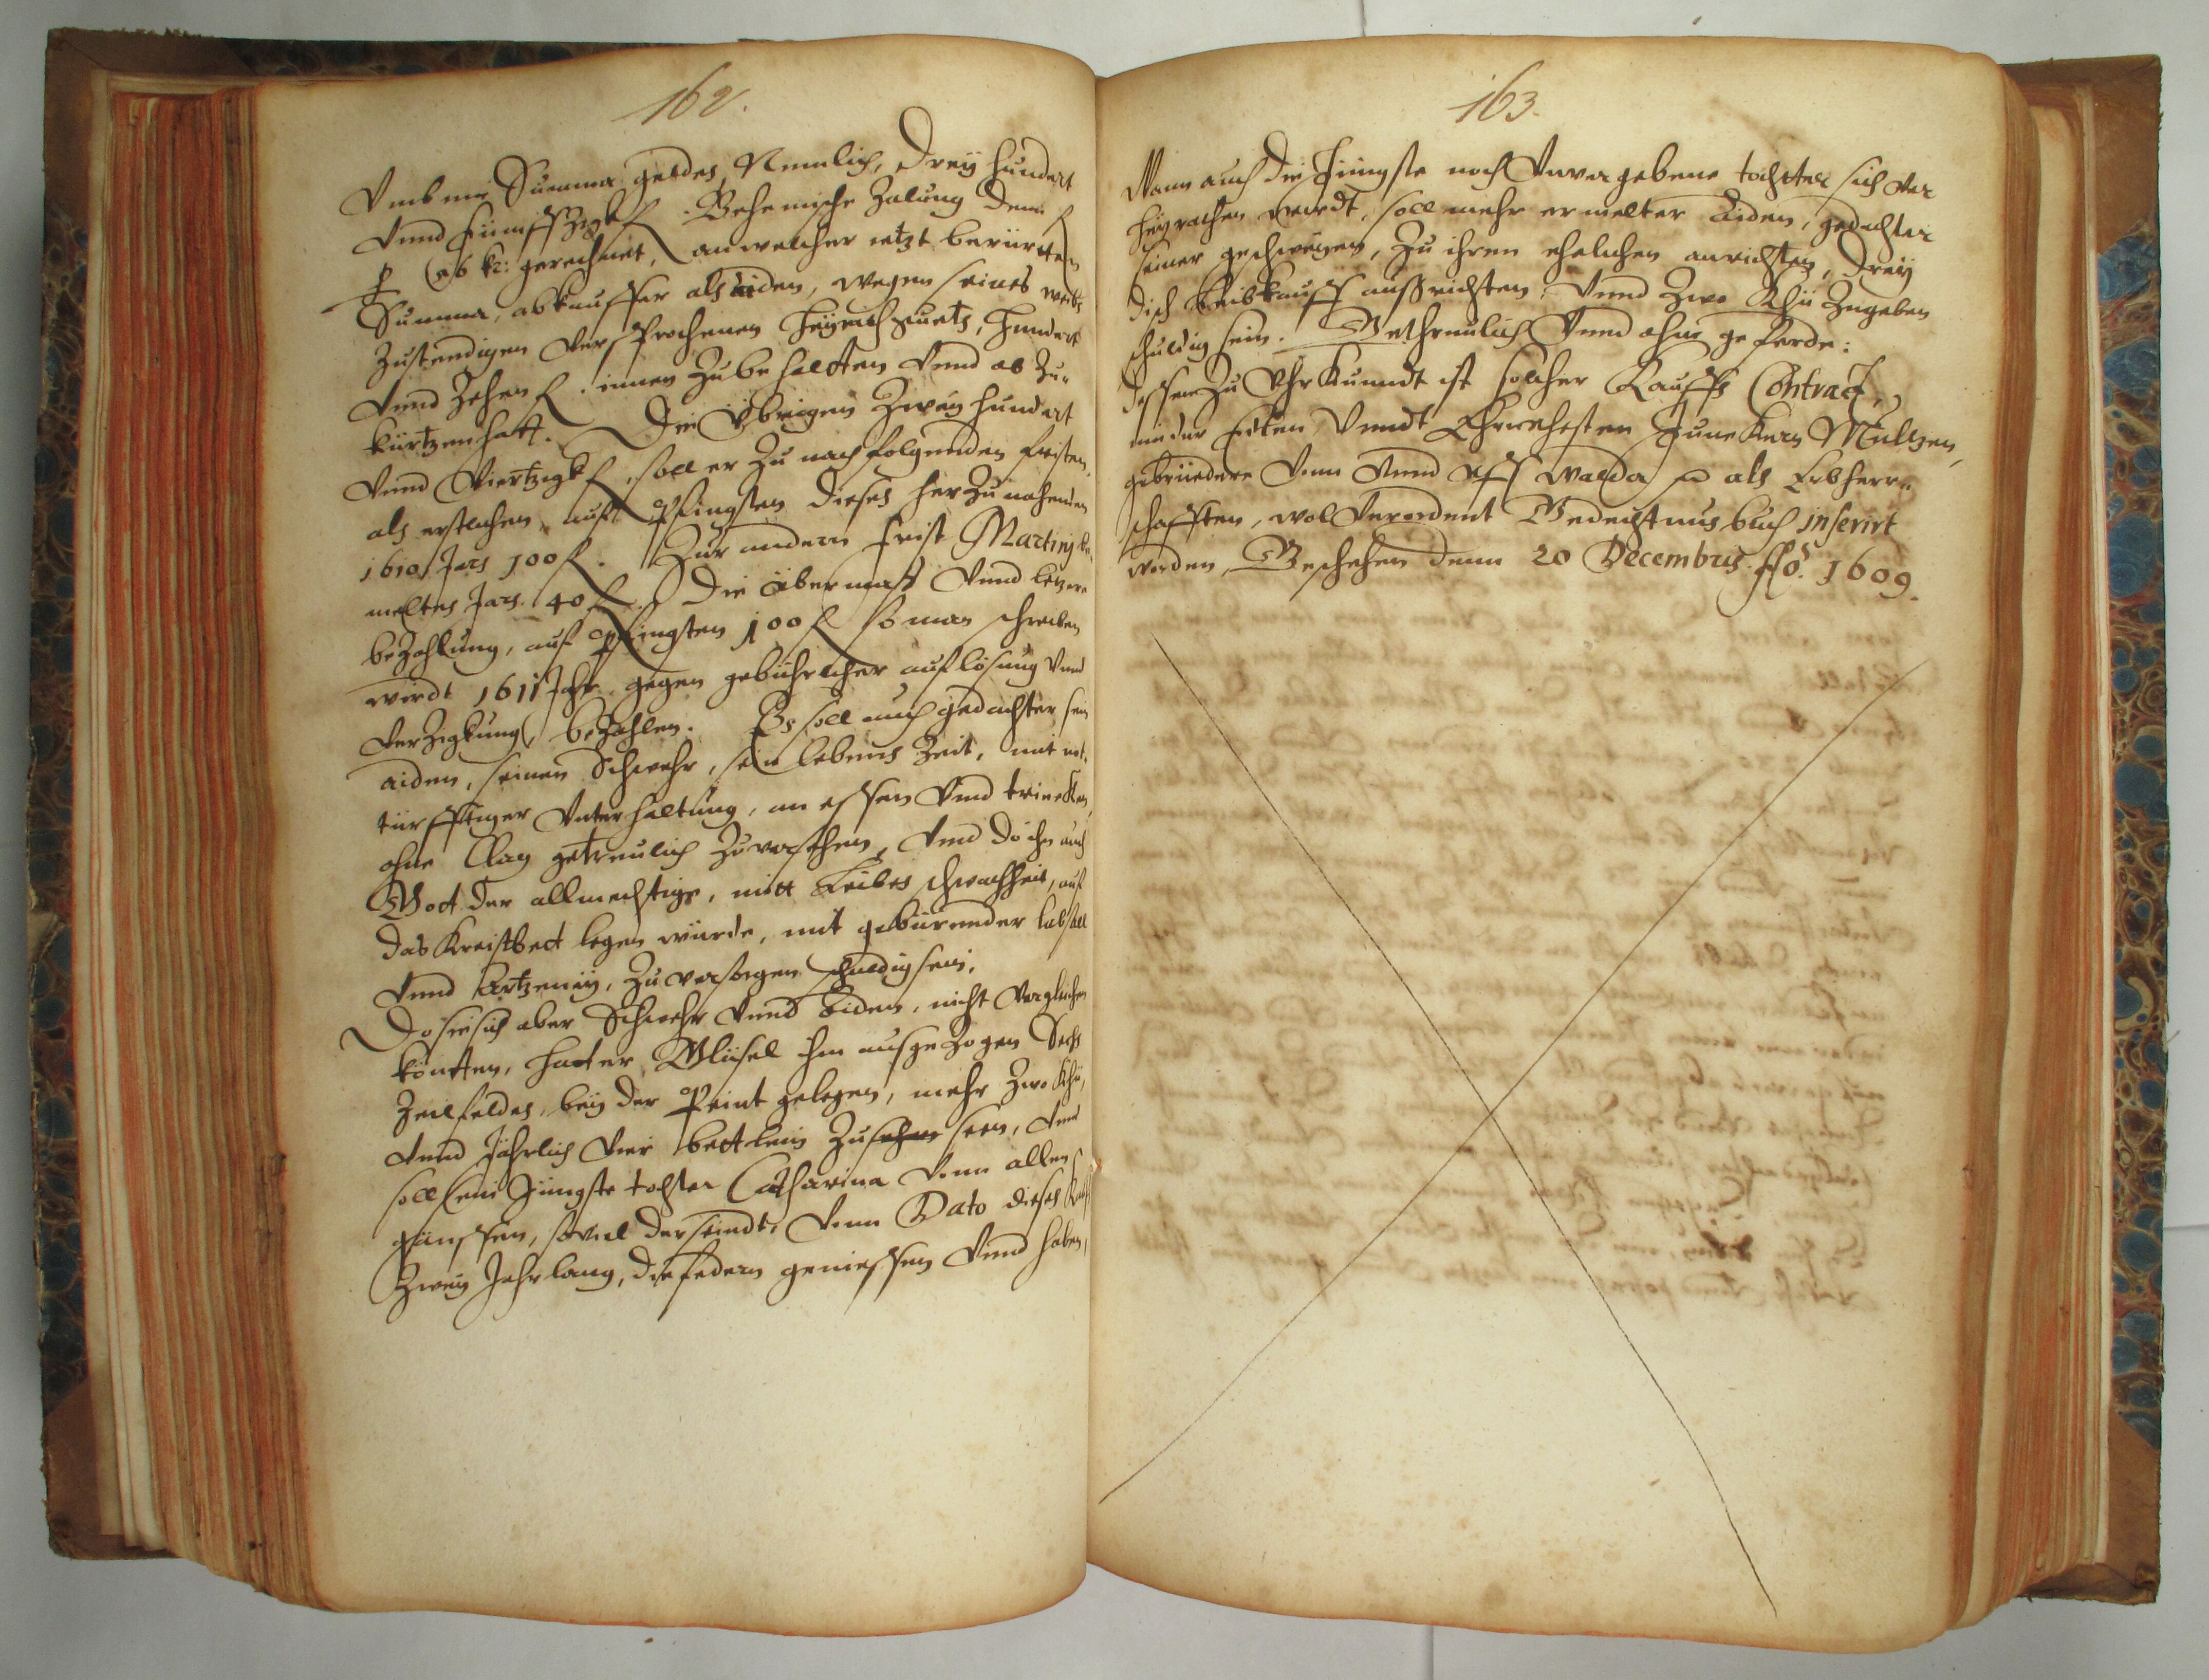 162.
Umb eine Summa geldes, Nemlich, Dreÿ hundert
Vnnd Fünffzigk fl. Behemische Zalung denn fl
p 56 kr: gerechnet, an welcher ietzt berürtten
Summa, abkauffer als aiden, wegen seines weibs
Zustendigen Versprochenen Heÿrathguets, Hundert
Vnnd Zehen fl. innen Zubehaltten Vnnd ab Zu-
kürtzen hatt. Die Übrigen Zweÿ hundert
Vnnd Viertzigk fl, soll er Zu nachfolgenden fristen,
als erstlichen, auff Pfingsten dieses herzu nahenden
1610 Jars 100 fl. Zur andern frist Martinj be-
meltes Jars. 40 fl. Die übermaß Vnnd letzere
bezahlung, auf Pfingsten 100 fl so man schreiben
wirdt 1611 Jahr gegen gebührlicher auflösung Vnnd
Verzigkung, bezahlen. Es soll auch gedachter sein
aiden, seinen Schwehr, sein lebens Zeit, mit not-
türfftiger Unterhaltung, an essen Vnnd trincken,
ohne Clag getreulich Zuversehen, Vnnd do ihn auch
Gott der allmechtige, mitt Leibes schwachheit, auf
das Kreistbett legen würde, mit gebürender labsall
Vnnd Artzeneÿ, Zu versorgen schuldig sein.
Do sie sich aber Schwehr Vnnd Aiden, nicht Vergleichen
köntten, hatt er, ihm ausgezogen Sechs
Zeil feldes, beÿ der Peint gelegen, mehr Zwo Khü,
Vnnd Jährlich Vier bettlein Zusehen seen, Vnnd
soll sein Jüngste tochter Catharina Vonn allen
gänssen, soviel der seindt, Vonn Dato dieses Kauffs
Zweÿ Jahr lang, die federn geniessen Vnnd haben,
163.
Wann auch die Jüngste noch Unvergebene tochter sich ver
heÿrathen wirdt, soll mehr ermelter Aiden, gedachter
seiner geschweÿen, Zu ihren ehelichen anrichten, Dreÿ
disch Leibkauff außrichten, Vnnd Zwo Khü Zugeben
schuldig sein. Gethreulich Vnnd ohne geferde:
dessen Zu Uhrkunndt ist solcher Kauffs Contract,
in der Edlen Vnndt Ehrnvhesten Junckern Multzen,
gebrüedere Vonn Vnnd uff Walda p als Erbherr-
schafften, wol Verordent Gedechtnus buch inserirt
worden, Geschehen denn 20 Decembris Ao. 1609.